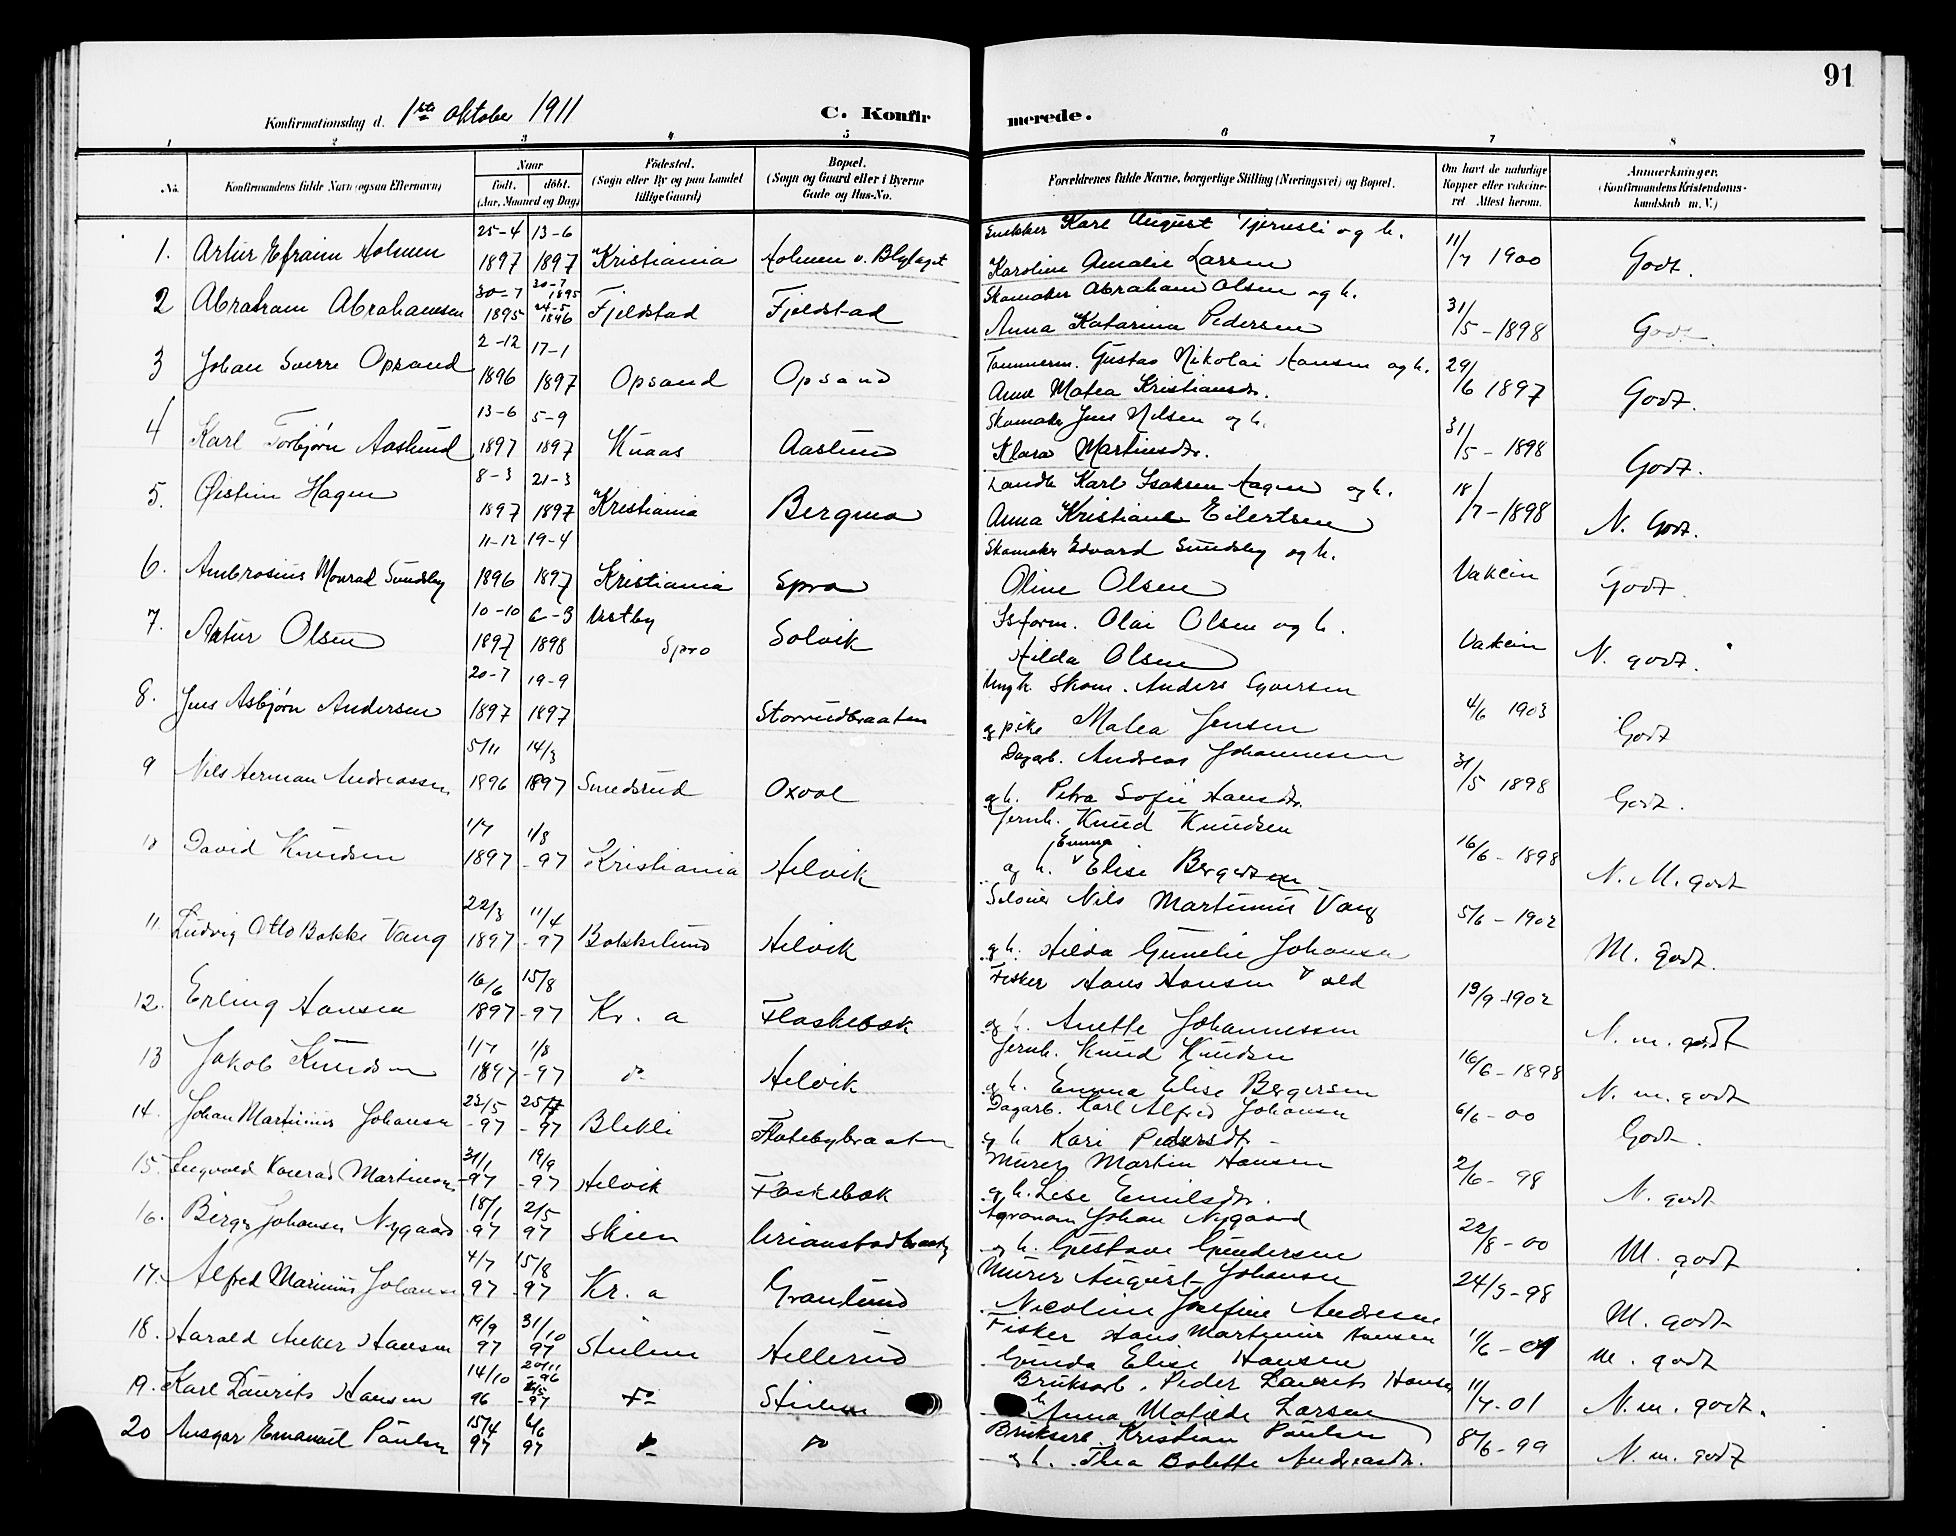 91
Konfirmationsdag d. 1ste oktober 1911 C. Konfirmerede.
1 2 3 4 5 6 7 8
No. Konfirmandens fulde Navn (ogsaa Efternavn) Naar født. døbt. (Aar, Maaned og Dag) Fødested. (Sogn eller By og paa Landet tillige Gaard) Bopæl. (Sogn og Gaard eller i Byerne Gade og Hus-No. Forældrenes fulde Navne, borgerlige Stilling (Næringsvei) og Bopæl. Om havt de naturlige Kopper eller vakcineret Attest herom. Anmerkninger. (Konfirmandens Kristendomskundskab m. V.)
1. Artur Efraim Holmen 25-4 1897 13-6 1897 Kristiania Holmen v. Blylaget Snekker Karl August Tjernsli og h.
Karoline Amalie Larsen 11/7 1900 Godt.
2 Abraham Abrahamsen 30-7 1895 20-7 1895 24-5 1896 Fjeldstad Fjeldstad Skomaker Abraham Olsen og h.
Anna Katarina Pedersen 31/5-1898 Godt.
3 Johan Sverre Opsand 2-12 1896 17-1 1897 Opsand Opsand Tømmerm. Gustav Nikolai Hansen og h.
Anne Matea Kristiansdr. 29/6 1897 Godt.
4 Karl Torbjørn Aaslund 13-6 1897 5-9 1897 Knaas Aaslund Skomaker Jens Nilsen og h.
Klara Martinsdr. 31/5-1898 Godt.
5. Øistein Hagen 8-3 1897 21-3 1897 Kristiania Bergmo Landh. Karl Isaksen Hagen og h.
Anna Kristiane Eilertsen 18/7-1898 N. Godt.
6. Ambrosius Monrad Sundsby 11-12 1896 19-4 1897 Kristiania Spro Skomaker Edvard Sundsby og h.
Oline Olsen Vakcin Godt.
7. Artur Olsen 10-10 1897 6-3 1898 Vestby Spro Solvik Isform. Olai Olsen og h.
Hilda Olsen Vakcin N. godt.
8. Jens Asbjørn Andersen 20-7 1897 19-9 1897 Storrudbraaten Ungk. Skom. Anders Syversen
og pike Matea Jensen 4/6 1903 Godt
9 Nils Herman Andreassen 5/11 1896 14/3 1897 Smedsrud Oxval Dagarb. Andreas Johannesen
og h. Petra Sofie Hansdr. 31/5 1898 Godt.
10 David Knudsen 1/7 1897 1/8 -97 Kristiania Helvik Jernh. Knud Knudsen
og h. Emma Elise Bergersen 16/6-1898 N. M. godt
11 Ludvig Otto Bakke Vang 22/3 1897 11/4 -97 Bakkelund Helvik Nils Martinius Vang
og h. Hilda Gunelie Johansen 5/6-1902 M. godt.
12. Erling Hansen 16/6 1897 15/8 -97 Kr. a Flaskebæk Fisker Hans Hansen
og h. Anette Johannessen 19/9-1902 N. m. godt
13 Jakob Knudsen 1/7 1897 1/8 -97 do Helvik Jernh. Knud Knudsen
og h. Emma Elise Bergersen 16/6-1898 N. m. godt
14. Johan Martinius Johansen 23/5 -97 25/7 -97 Blekli Flatebybraaten Dagarb. Karl Alfred Johansen
og h Kari Pedersdr. 6/6-00 Godt.
15. Ingvald Konrad Martinsen 31/1 -97 19/9 -97 Helvik Flaskebæk Murer Martin Hansen
og h. Lise Emilsdr. 2/6-98 N. godt
16. Birger Johansen Nygaard 18/1 97 2/5 97 Skien Agronom Johan Nygaard
og h. Gustave Gundersen 22/8-00 M. godt
17. Alfred Marinius Johansen 4/7 97 15/8 97 Kr. a Granlund Murer August Johansen
Nicoline Josefine Andresen 24/9-98 M. godt
18. Harald Anker Hansen 19/9 97 31/10 97 Stulen Hellerud Fisker Hans Martinius Hansen
Gunda Elise Hansen 11/6-04 M. godt
19. Karl Laurits Hansen 14/10 96 20/11 -96 -97 do Stulen Bruksarb. Peder Laurits Hansen
h Anna Matilde Larsen 11/7-01 N. m. godt.
20 Ansgar Emanuel Paulsen 15/4 97 6/6 97 do do Bruksarb. Kristian Paulsen
og h. Thea Bolette Andreasdr. 8/6-99 N. m. godt